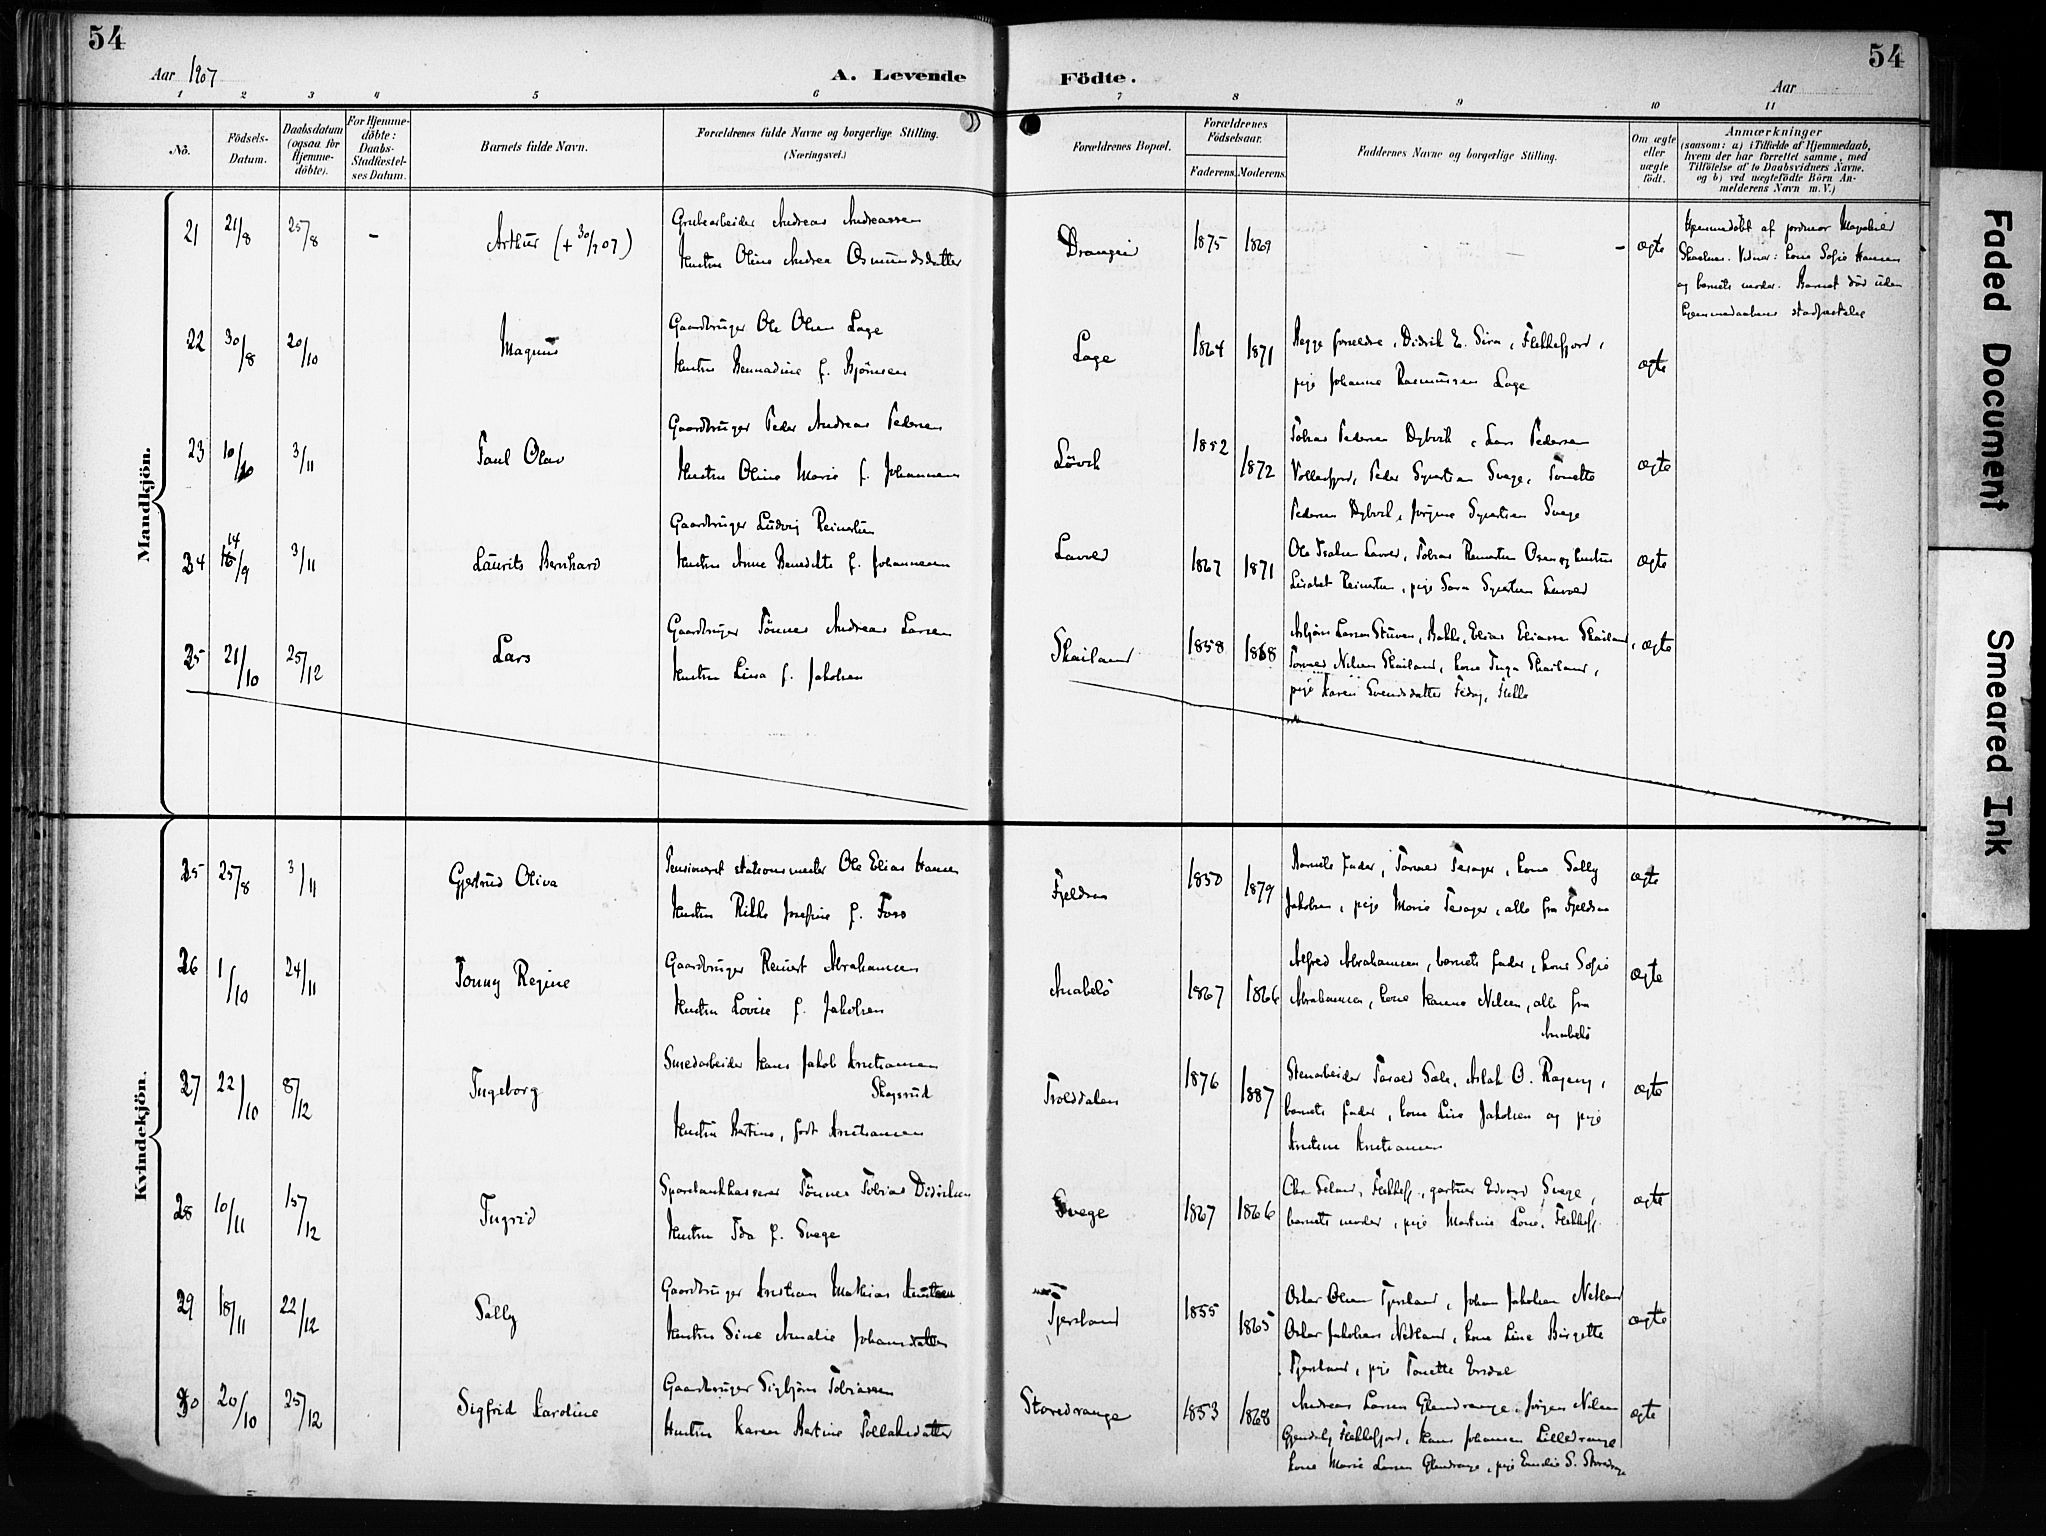 54
54
Aar 1907
A. Levende
Födte.
Aar
1 2 3 4 5 6 7 8 9 10 11
No.
Födsels-
Datum.
Daabsdatum
(ogsaa for
Hjemme-
döbte).
For Hjemme-
döbte:
Daabs-
Stadfæstel-
ses Datum.
Barnets fulde Navn.
Forældrenes fulde Navne og borgerlige Stilling.
(Næringsvei.)
Forældrenes Bopæl.
Forældrenes
Födselsaar.
Faderens. Moderens.
Faddernes Navne og borgerlige Stilling.
Om ægte
eller
uægte
födt.
Anmærkninger
(saasom: a) i Tilfælde af Hjemmedaab,
hvem der har forrettet samme, med
Tilföielse af to Daabsvidners Navne.
og b) ved uægtefödte Börn An-
melderens Navn m. V.)
Mandkjön.
21 21/8 25/8 - Arthur (+ 30/9 07)
Grubearbeider Andreas Andreassen
Hustru Oline Andrea Osmundsdatter
Drangei 1875 1869 - ægte
Hjemmedöbt af jordmor
Vidner: kone Sofie Hansen
og barnets moder. Barnet död uden
hjemmedaabens stadfæstelse
22 30/8 20/10 Magnus
Gaardbruger Ole Olsen Lage
Hustru Bernadine f. Björnsen
Lage 1864 1871
Begge forældre, Didrik E. Sira, Flekkefjord,
pige Johanne Rasmussen Lage
ægte
23 10/10 3/11 Paul Olav
Gaardbruger Peder Andreas Pedersen
Hustru Oline Marie f. Johannesen
Lövik 1852 1872
Tobias Pedersen Dybvik, Lars Pedersen
Vollesfjord, Peder Syvertsen Svege, Tonette
Pedersen Dybvik, Svege
ægte
24 14/9 3/11 Laurits Bernhard
Gaardbruger Ludvig Reinertsen
Hustru Anne Benedikte f. Johannesen
Lavold 1867 1871
Ole Lavold, Tobias Reinertsen Osen og hustru
Lisabet Reinertsen, pige Sara Syvertsen Lavold
ægte
25 21/10 25/12 Lars
Gaardbruger Tönnes Andreas Larsen
Hustru Lina f. Jakobsen
Skailand 1858 1868
Asbjörn Larsen Stuven, Bakke, Elias Eliassen Skailand,
Nilsen Skailand, kone Inga Skailand,
pige Karen Svendsdatter Feda,
ægte
Kvindekjön.
25 25/8 3/11 Gjertrud Oliva
Pensioneret stationsmester Ole Elias Hansen
Hustru Rikke Josefine f. Foss
Fjeldsaa 1850 1879
Barnets fader, Tesager, kone Sally
Jakobsen, pige Marie Tesager, alle fra Fjeldsaa
ægte
26 1/10 24/11 Tonny Regine
Gaardbruger Reinert Abrahamsen
Hustru Lovise f. Jakobsen
Anabelö 1867 1866
Alfred Abrahamsen, barnets fader, kone Sofie
Abrahamsen, kone Hanna Nilsen, alle fra
Anabelö
ægte
27 22/10 8/12 Ingeborg
Smedarbeider Hans Jakob Kristiansen
Skogsrud
Hustru Bertine, födt Kristiansen
Trolddalen 1876 1887
Stenarbeider Sale, Aslak O.
barnets fader, kone Lise Jakobsen og pige
Kristine Kristiansen
ægte
28 10/11 15/12 Ingrid
Sparebankkasserer Tönnes Tobias Didriksen
Hustru Ida f. Svege
Svege 1867 1866
Flekkefj., gartner Edvard Svege,
barnets moder, pige Martine Lone, Flekkefj.
ægte
29 18/11 22/12 Sally
Gaardbruger Kristian Mathias Knutsen
Hustru Sine Amalie Johansdatter
Tjersland 1855 1865
Oskar Olsen Tjersland, Johan Jakobsen Netland
Oskar Jakobsen Netland, kone Line Birgitte
Tjersland, pige Tonette Ersdal
ægte
30 20/10 25/12 Sigfrid Karoline
Gaardbruger Sigbjörn Tobiassen
Hustru Karen Bertine Tollaksdatter
Storedrange 1853 1868
Andreas Larsen Glendrange, Jörgen Nilsen
Gjendal, Flekkefjord, Hans Johansen Lilledrange
kone Marie Larsen Glendrange, pige Emilie S.
ægte
Faded Document
Smeared Ink